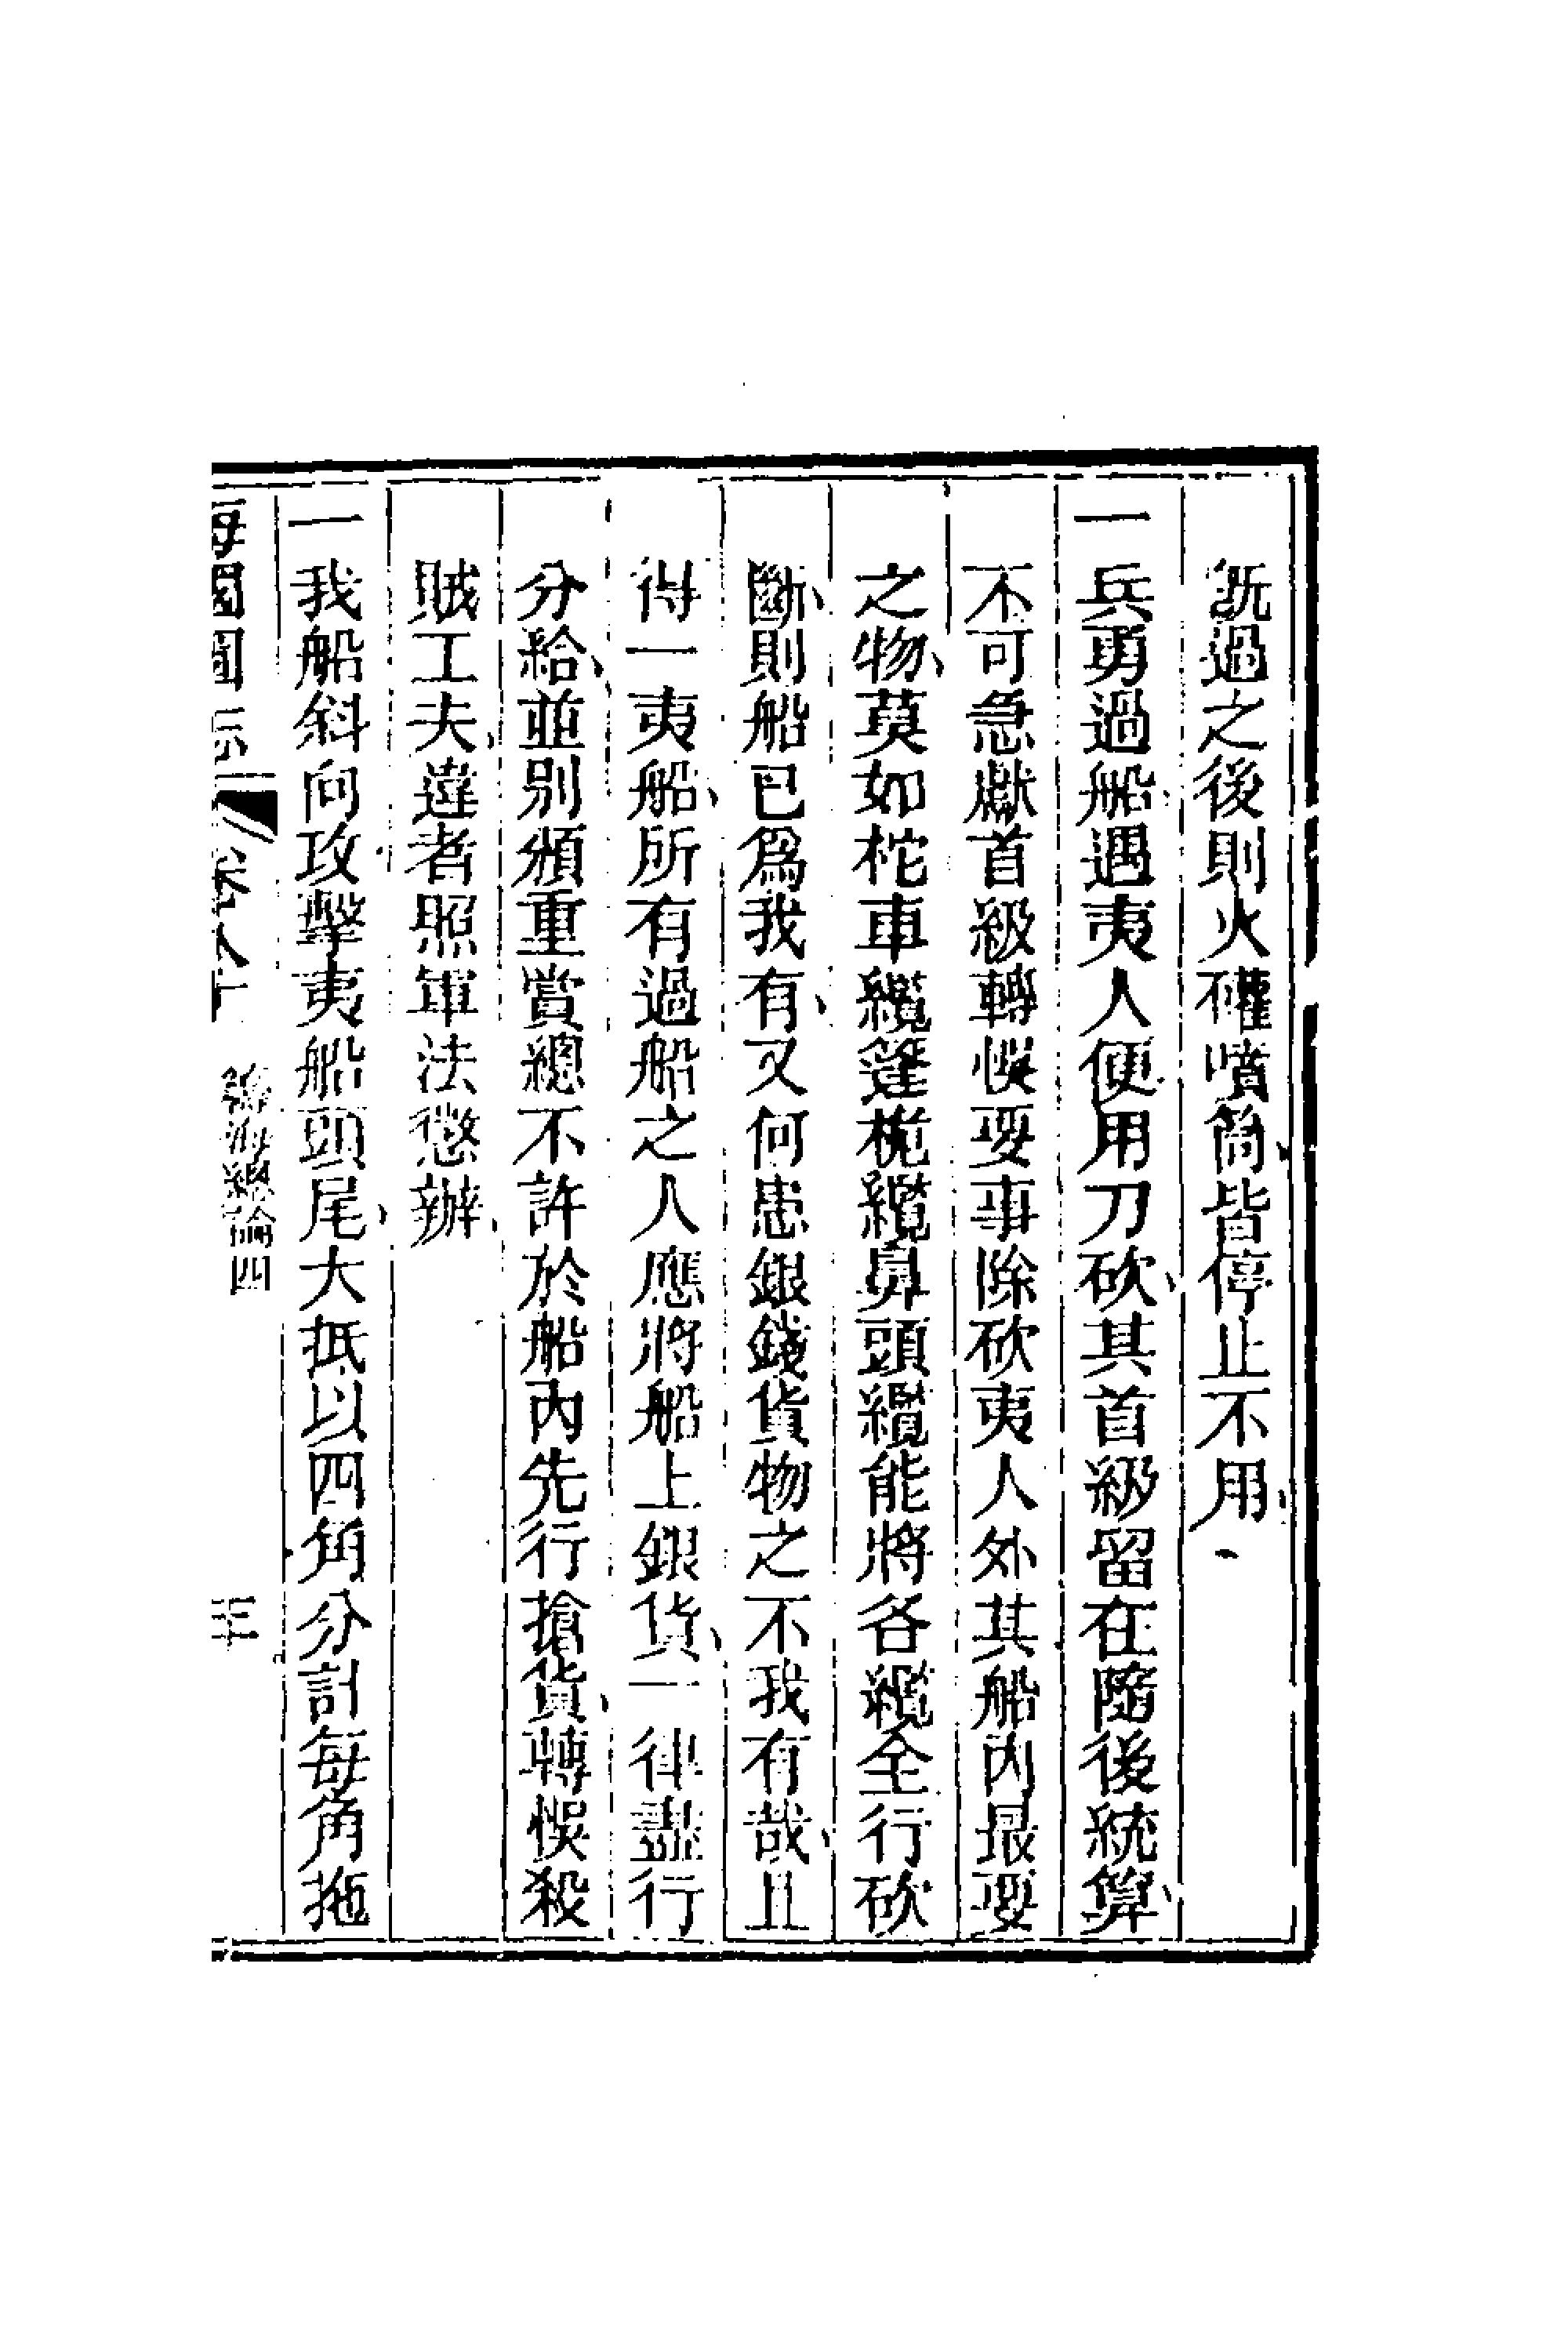 既過之後則火礶噴筒皆停止不用
一兵勇過船遇夷人便用刀砍其首級留在隨後統算
不可急獻首級轉悞要事除砍夷人外其船內最要
之物莫如柁車纜篷桅纜鼻頭纜能將各纜全行砍
斷則船已爲我有又何患銀錢貨物之不我有哉且
得一夷船所有過船之人應將船上銀貨一律盡行
分給並別頒重賞總不許於船內先行搶貨轉悞殺
賊工夫違者照軍法懲辦
一我船斜向攻擊夷船頭尾大抵以四角分計每角拖
海國圖志 卷八十 籌海總論四